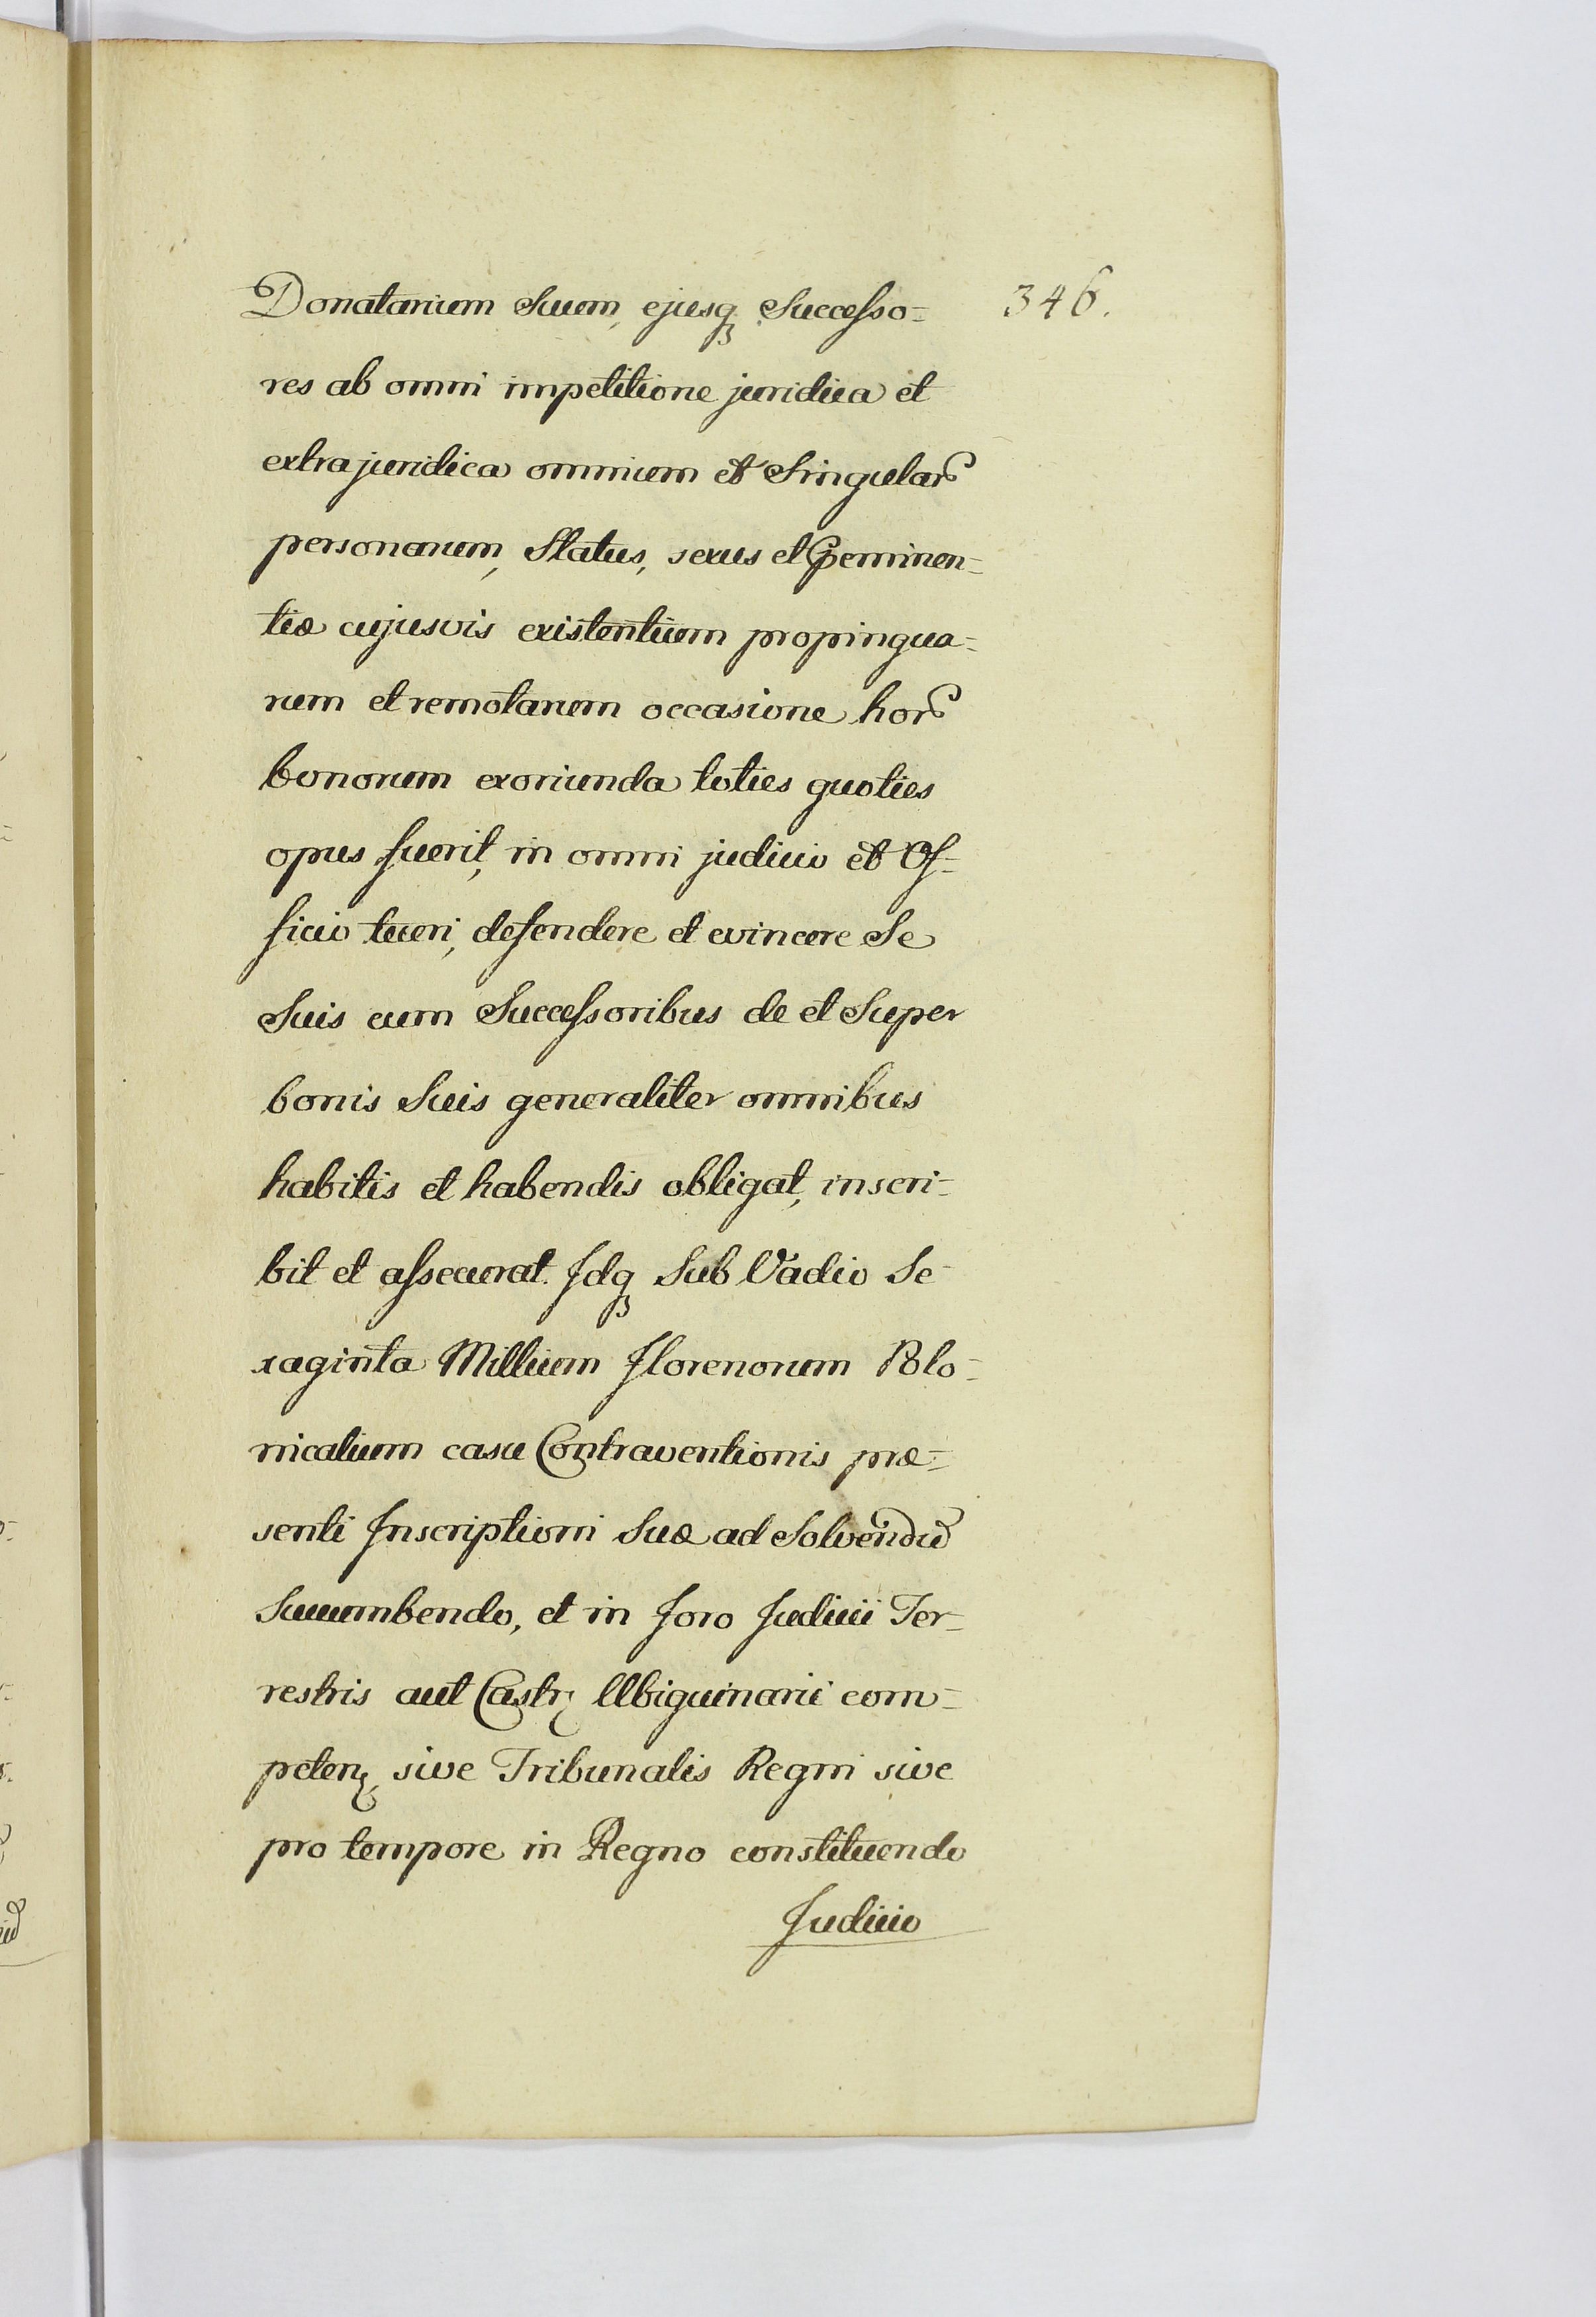 Donatarium Suum, ejusq; Successo=
346.
res ab omni impetitione juridica et
extrajuridica omnium et Singular
personarum, Status, sexus et Præeminen=
tiæ cujusvis existentium propinqua=
rum et remotarum occasione hor
bonorum exoriunda toties quoties
opus fuerit, in omni judicio et Of=
ficio tueri, defendere et evincere Se
Suis cum Successoribus de et Super
bonis Suis generaliter omnibus
habitis et habendis obligat, inscri=
bit et assecurat. Idq; Sub Vadio Se-
xaginta Millium Florenorum Polo=
nicalium casu Contraventionis præ=
senti Inscriptioni Suæ ad Solvendū
Succumbendo, et in Foro Judicii Ter=
restris aut Castr; Ubiquinarii com=
peten; sive Tribunalis Regni sive
pro tempore in Regno constituendo
Judicio